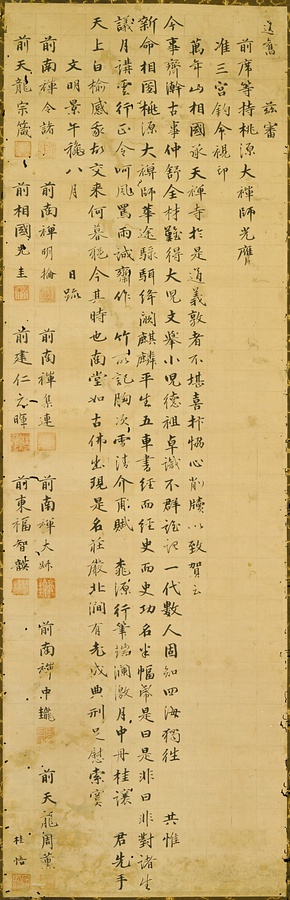 道舊 茲審
前席等持桃源大禪師光膺
准三宮鈞命視印
萬年山相國承天禪寺於是道義敦者不堪喜抃協心削牘以致賀云
今事齊 古事仲舒全材難得大兒文舉小兒德祖卓識不群 一代數人固知四海獨 共惟
新命相國桃源大禪師華途騄駬絳闕麒麟平生五車書經而經史而史功名半幅 是曰是非曰非對諸生
議月講雲行正令呵風罵雨誠齋作 竹 記胸次雪清介甫賦 桃源行筆端瀾激月中丹桂讓 君先手
天上白榆感我故交來何暮也今其時也南堂如古佛出現是名莊嚴北澗有老成典刑足慰索寞
文明景午龝八月 日疏
前南禪令諸 前南禪明 前南禪集連 前南禪大 前南禪中 前天龍周 
前天龍宗箴 前相國光圭 前建仁元暉 前東福智